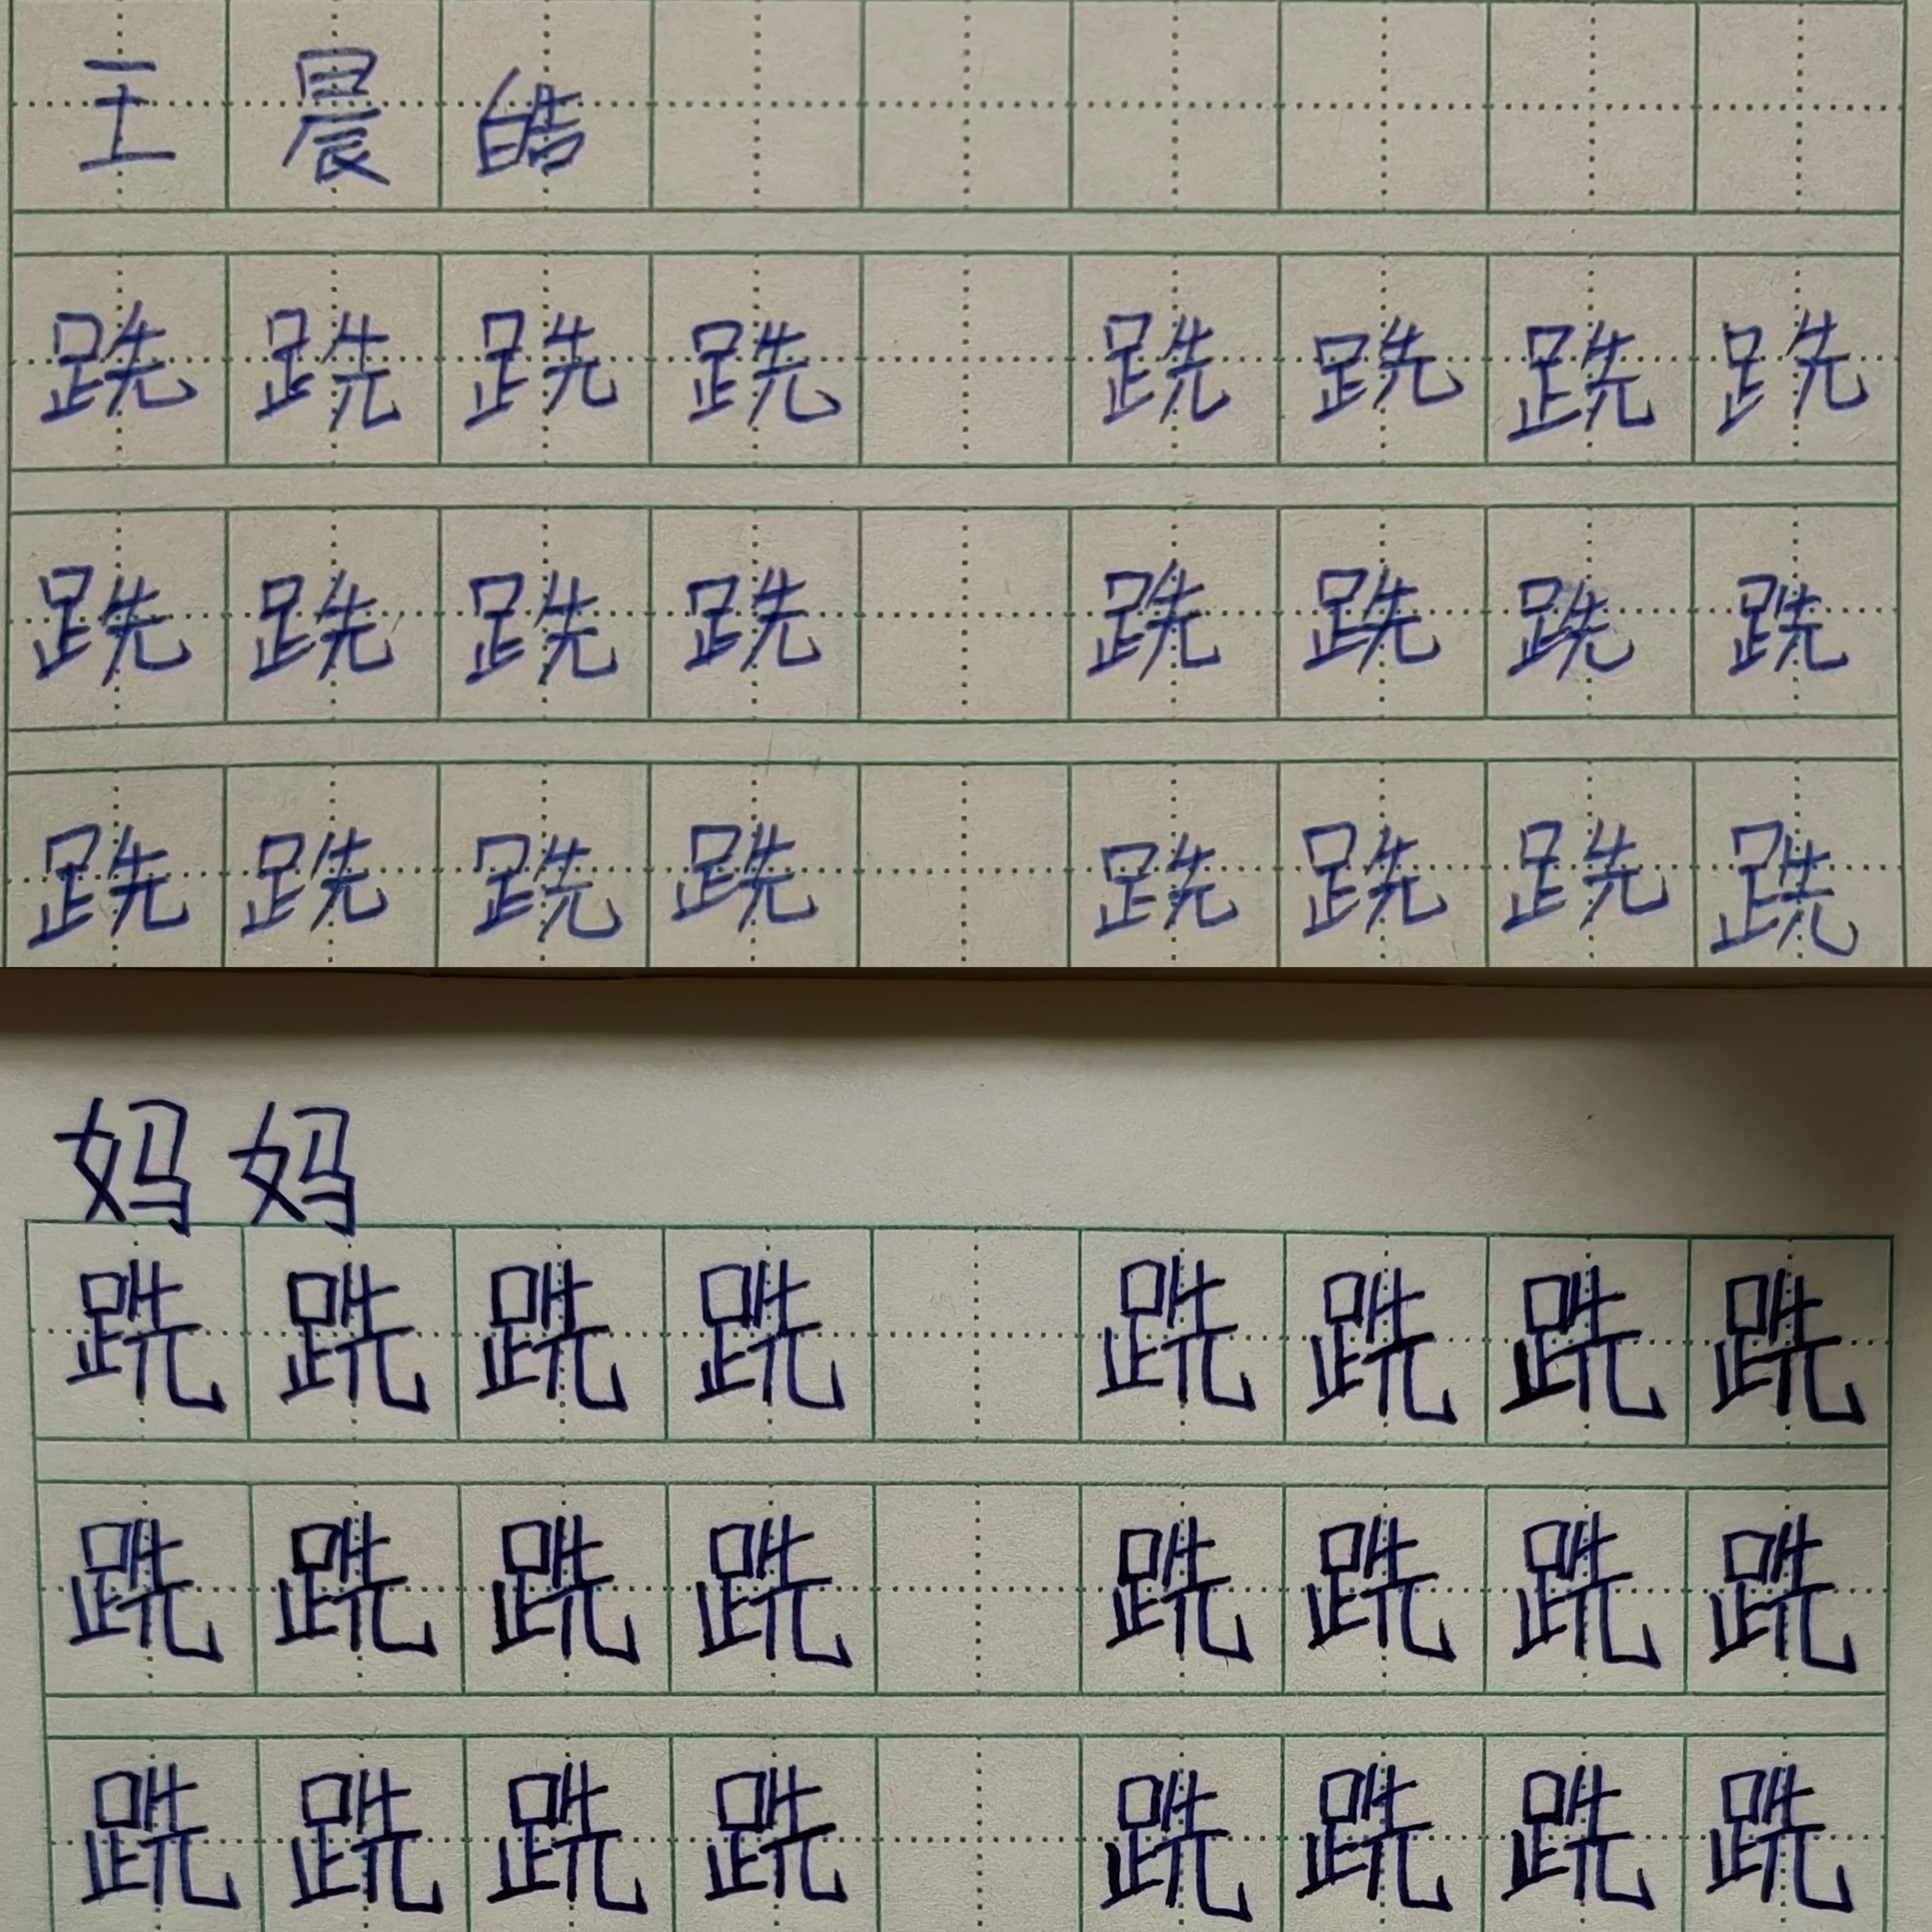 王晨皓
跣跣跣跣 跣跣跣跣
跣跣跣跣 跣跣跣跣
跣跣跣跣 跣跣跣跣
妈妈
跣跣跣跣 跣跣跣跣
跣跣跣跣 跣跣跣跣
跣跣跣跣 跣跣跣跣